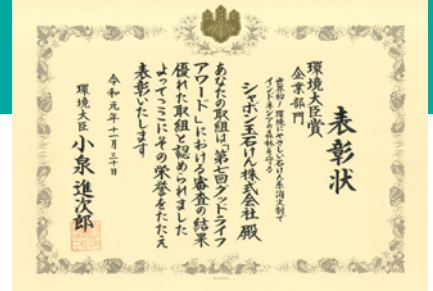 表彰状
環境大臣賞
企業部門
世界初!環境にやさしい石けん系消火剤で
インドネシアの森林を守る
シャボン玉石けん株式会社 殿
あなたの取組は「第七回グッドライフ
アワード」における審査の結果
優れた取組と認められました
よってここにその栄誉をたたえ
表彰いたします
令和元年十一月三十日
環境大臣 小泉進次郎